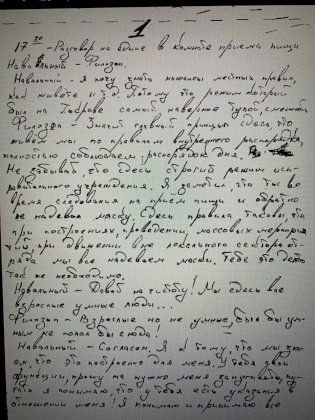 1
17 30 - Разговор на едине в комнате приема пищи
Навальный - Филозоп.
Навальный - Я хочу знать нюансы местных правил,
как живете и т.д. Потому что режим который
был на Покрове самый наверное тупой, смешной
Филозоп - Значит главный принцип здесь что
живем мы по правилам внутреннего распорядка,
полностью соблюдаем распорядок дня.
Не забывай что здесь строгий режим исп-
равительного учреждения. Я заметил что ты во
время следования на прием пищи и обратно
не надевал маску. Здесь правила таковы, что
при построениях, проведении массовых меропри
тий, при движении вне локального сектора от-
ряда мы все надеваем маски. Тебе это делать
так же необходимо.
Навальный - Давай на чистоту! Мы здесь все
взрослые умные люди...
Филозоп - Взрослые но не умные, был бы ум-
ным не попал бы сюда!
Навальный - Согласен. Я к тому, что мы
что построено для меня. У тебя свои
функции, прошу не нужно меня
я понимаю, что у тебя есть указания в
отношении меня! Я понимаю и принимаю все